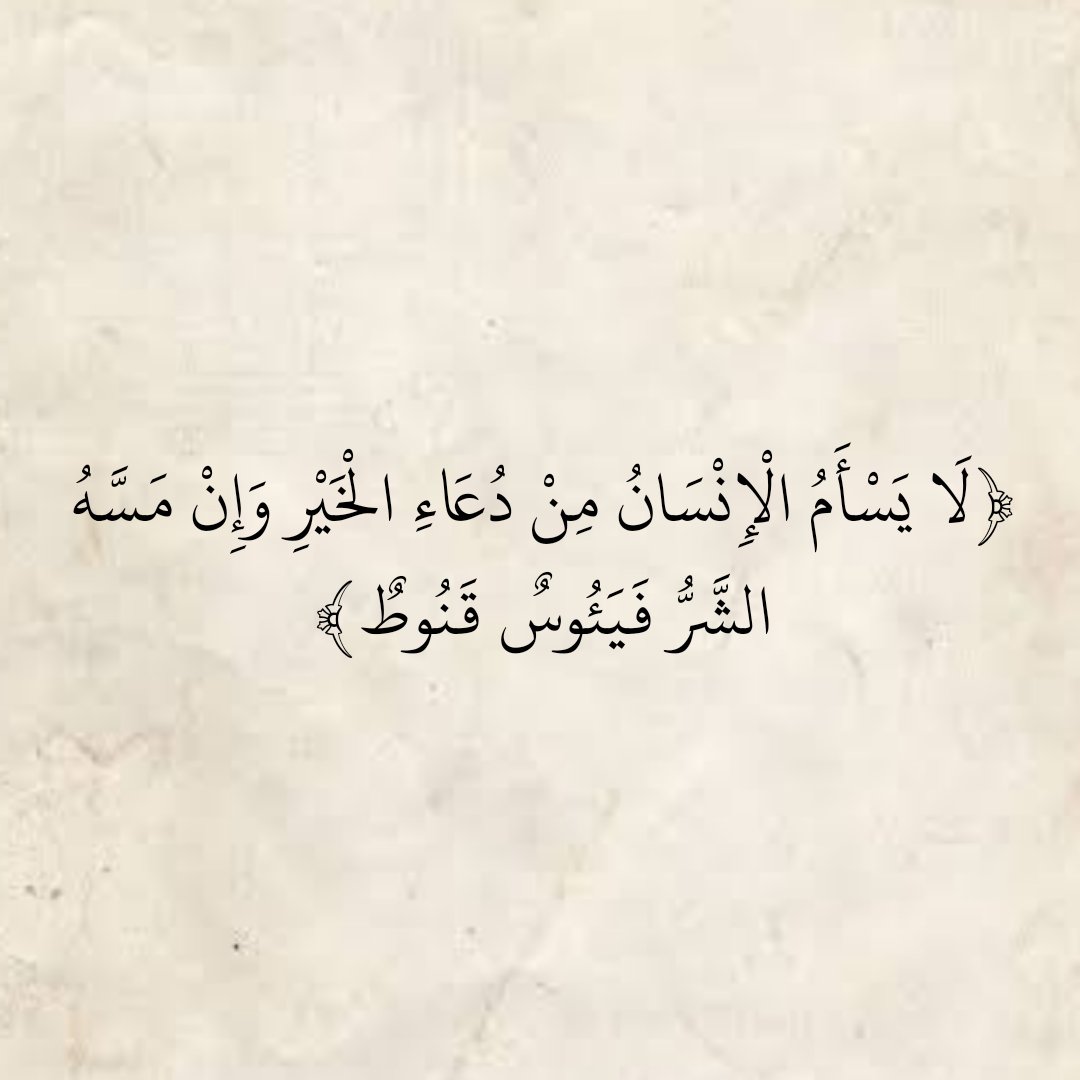 ﴿لَا يَسْأَمُ الْإِنْسَانُ مِنْ دُعَاءِ الْخَيْرِ وَإِنْ مَسَّهُ
الشَّرُّ فَيَئُوسٌ قَنُوطٌ﴾